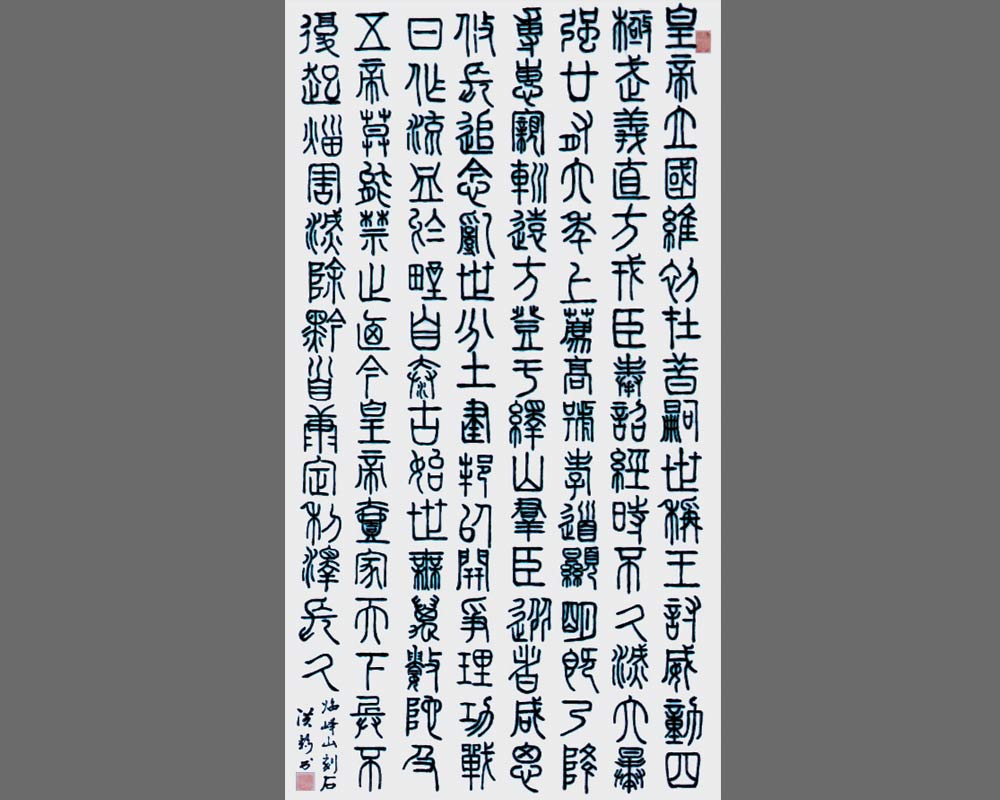 皇帝立國維初在昔嗣世稱王討威動四
極武義直方戎臣奉詔經時不久滅六暴
强廿有六年上薦高號孝道顯明既乃降
專惠親巡遠方登于繹山羣臣從者咸思
攸長追念亂世分土建邦以開爭理功戰
曰作流血於野自泰古始世無萬數陀及
五帝莫能禁止廼今皇帝壹家天下兵不
復起災害滅除黔首康定利澤長久
临峄山刻石